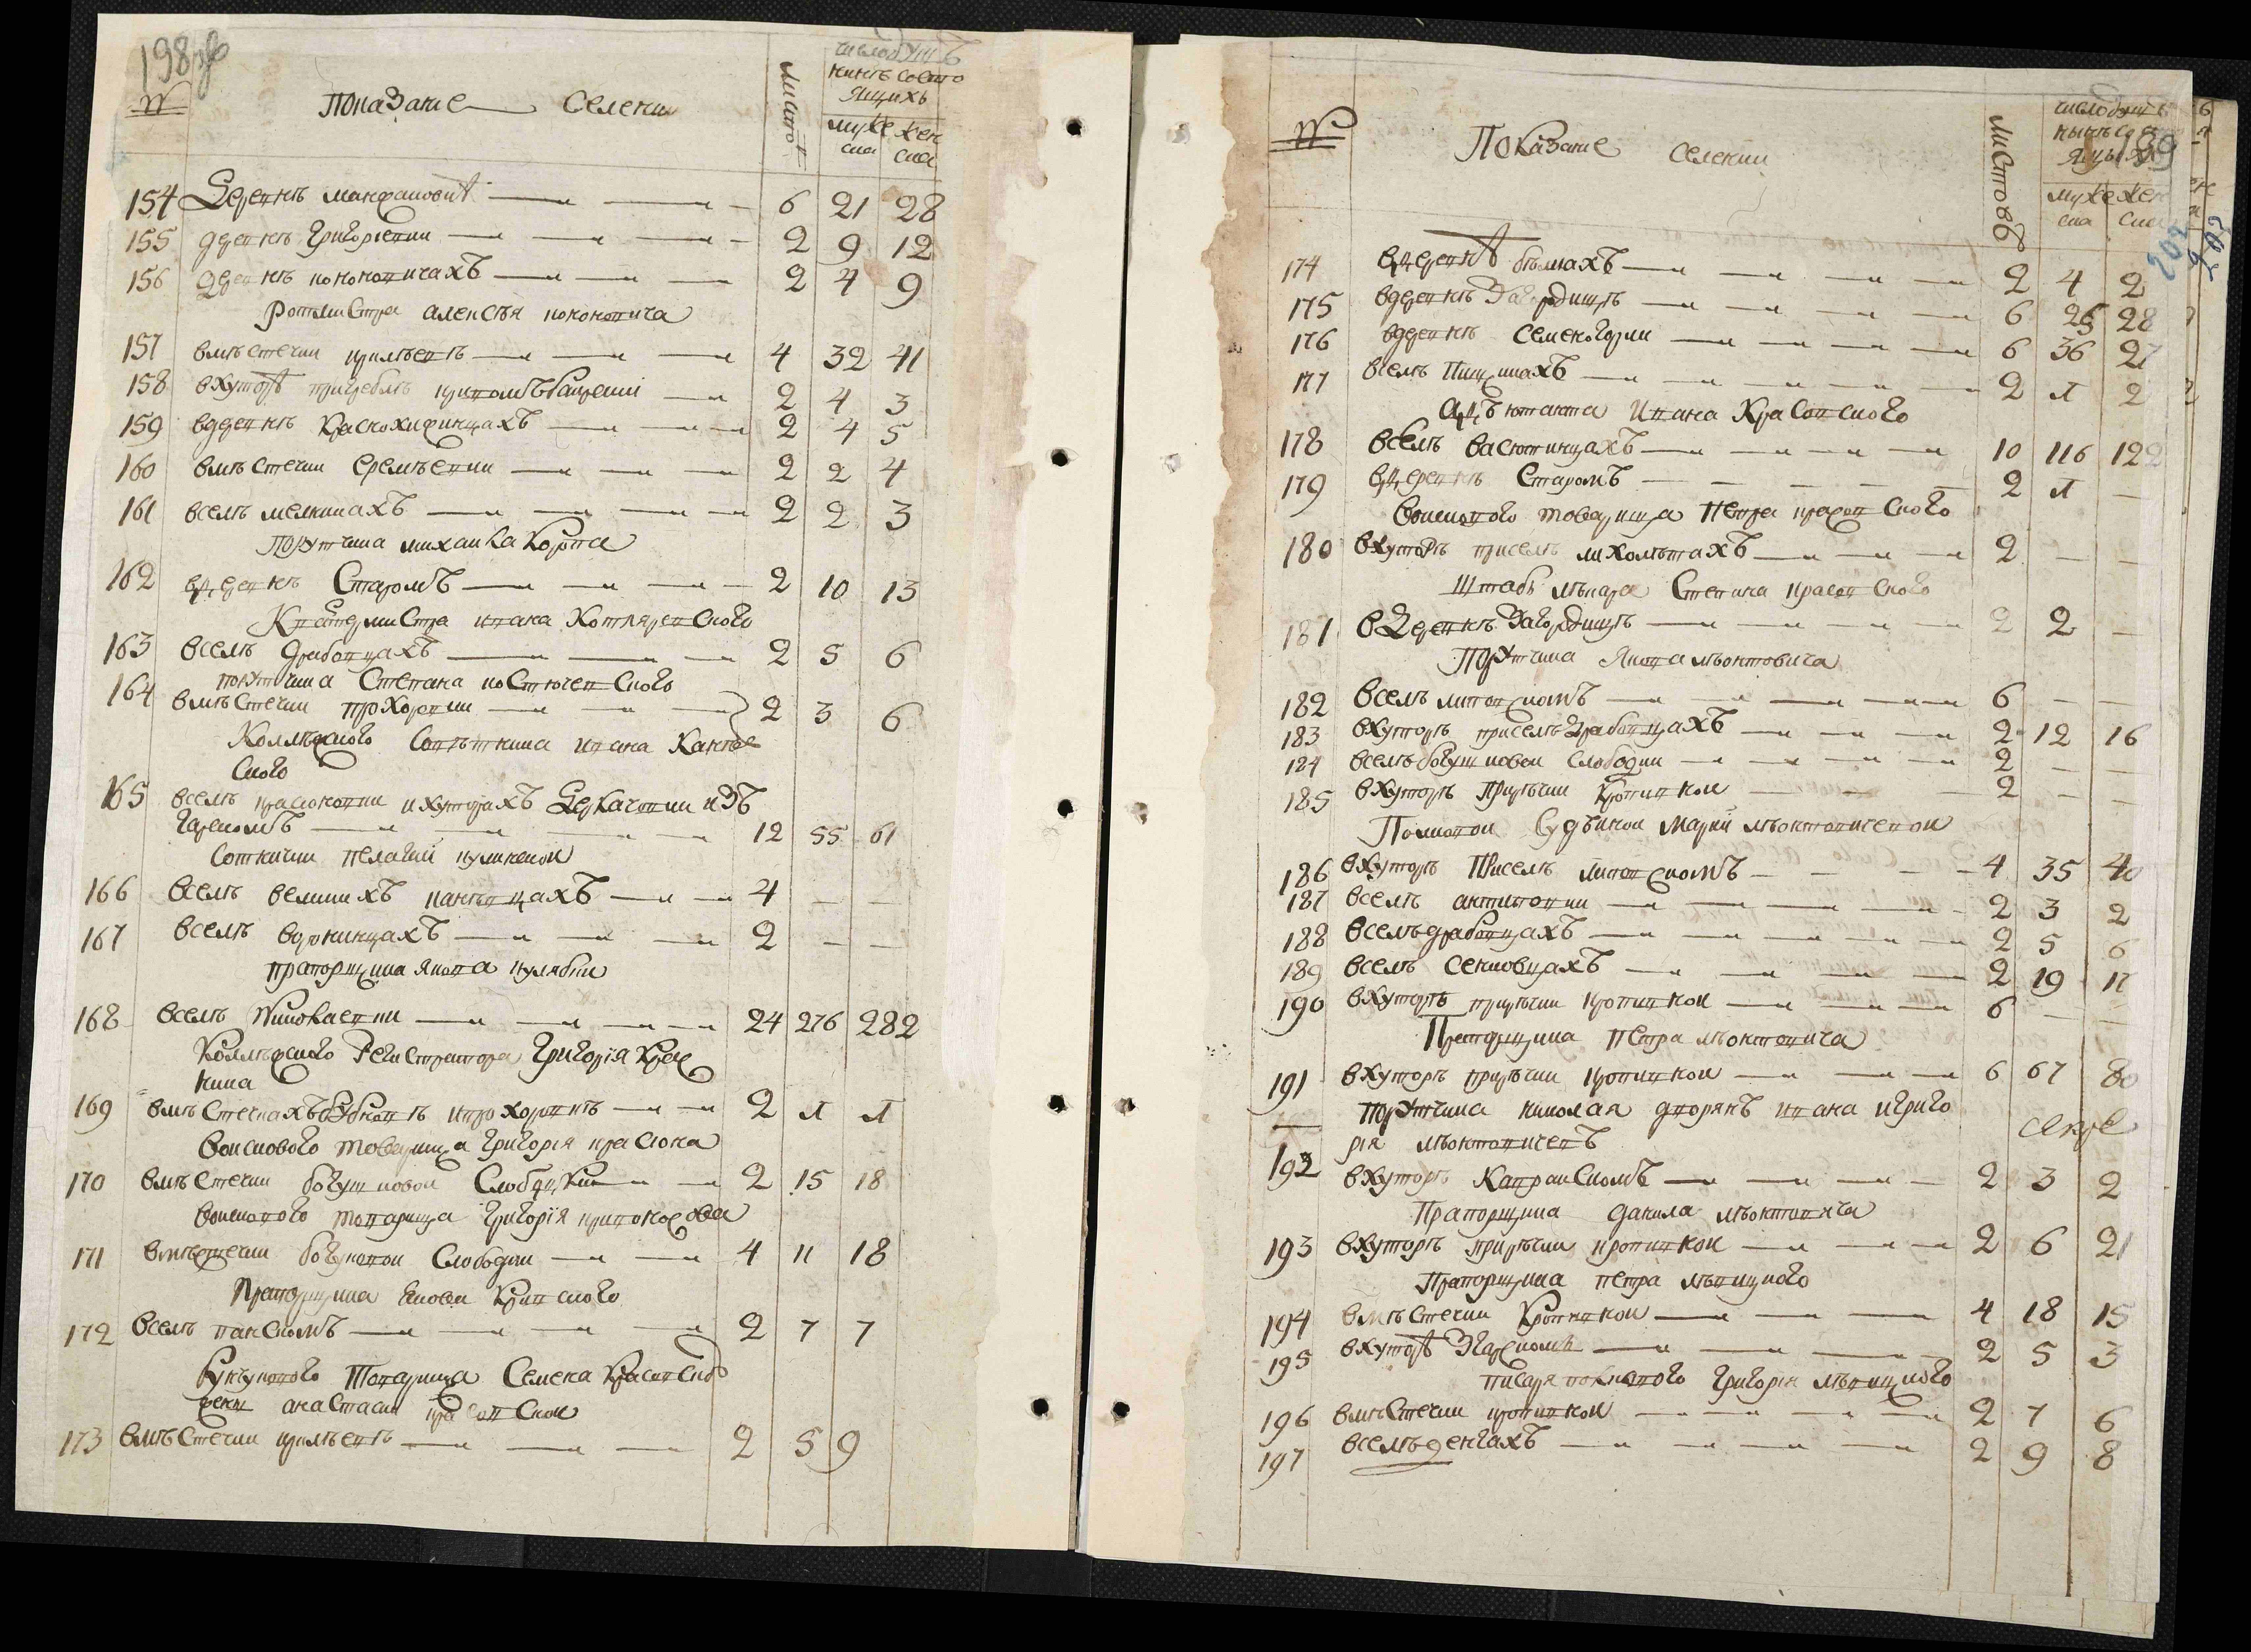 198 зв
№ Показание селени листов число душ ныне состоящих мужеска женска
154 Деревнѣ Манжаловкѣ 6 21 28
155 деревнѣ Григориевки 2 9 12
156 деревнѣ кононовичахъ 2 4 9
Ротмистра алексѣя кононовича
157 вмѣстечки ирклѣевѣ 4 32 41
158 вхуторѣ 2 4 3
159 вдеревнѣ Краснохижинцахъ 2 4 5
160 вмѣстечки еремѣевки 2 2 4
161 вселѣ мелникахъ 2 2 3
Порутчика михаила Корта
162 вдеревнѣ Старомъ 2 10 13
Квартермистра ивана Котляревского
163 вселѣ драбовцахъ 2 5 6
порутчика Степана костючевского
164 вмѣстечки прохоровки 2 3 6
Коллежского Советника ивана Каневского
165 вселѣ красионовки ихуторахъ Деркачовки иЗъ
гарскомъ 12 55 61
Сотнички пелагии кулженой
166 вселѣ великихъ канѣвцахъ 4 — —
167 вселѣ воронинцахъ 2 — —
прапорщика якова кулябки
168 вселѣ Николаевки 24 276 282
Коллежского Регистратора Григория Крас
ника
169 вмѣстечкахъ бубновѣ ипрохоровкѣ 2 л л
воискового товарища григория красюка
170 вмѣстечки богушковой Слободки 2 15 18
воискового товарища григория кривоносова
171 вмѣстечки богушковой Слободки 4 11 18
Прапорщика Якова Кривского
172 вселѣ панскомъ 2 7 7
бунчукового Товарища Семена Красовско
жены анастасии красовской
173 вмѣстечки ирклѣевѣ 2 5 9
199
№ Показание селении листовъ число душъ нынѣ состоящихъ мужеска женска
202
174 вдеревнѣ бѣлкахъ 2 4 2
175 вдеревнѣ Загородищѣ 6 25 28
176 вдеревнѣ семеногорки 6 36 27
177 вселѣ Пищикахъ 2 л 2
адъютанта ивана Красовского
178 вселѣ васютинцахъ 10 116 122
179 вдеревнѣ Старомъ 2 л —
воискового товарища петра красовского
180 вхуторѣ приселѣ лихолѣтахъ 2 — —
Штабъ лѣкара Степана красовского
181 вДеревнѣ Загородищѣ 2 2 —
Порутчика Якова лѣонтовича
182 вселѣ митовскомъ 6 — —
183 вхуторѣ приселѣ драбовцахъ 2 12 16
184 вселѣ богушковой слободки 2 — —
185 вхуторѣ прирѣчки Кропивной 2 — —
Полковой судѣиной Марии лѣонтовичевой
186 вхуторѣ Приселѣ митовскомъ 4 35 40
187 вселѣ антиповки 2 3 2
188 вселѣ драбовцахъ 2 5 6
189 вселѣ сенковцахъ 2 19 11
190 вхуторѣ прирѣчки кропивной 6 — —
Прапорщика Петра лѣонтовича
191 вхуторѣ прирѣчки кропивной 6 67 80
порутчика николая дворянъ ивана игриго
рия лѣонтовичевъ
192 вхуторѣ Каврайскомъ 2 3 2
Прапорщика данила лѣонтовича
193 вхуторѣ прирѣчки кропивной 2 6 21
Прапорщика петра лѣвицкого
194 вмѣстечки Кропивной 4 18 15
195 вхуторѣ Згарскомъ 2 5 3
писаря полкового григория лѣвицкого
196 вмѣстечки кропивной 2 7 6
197 вселѣ денгахъ 2 9 8